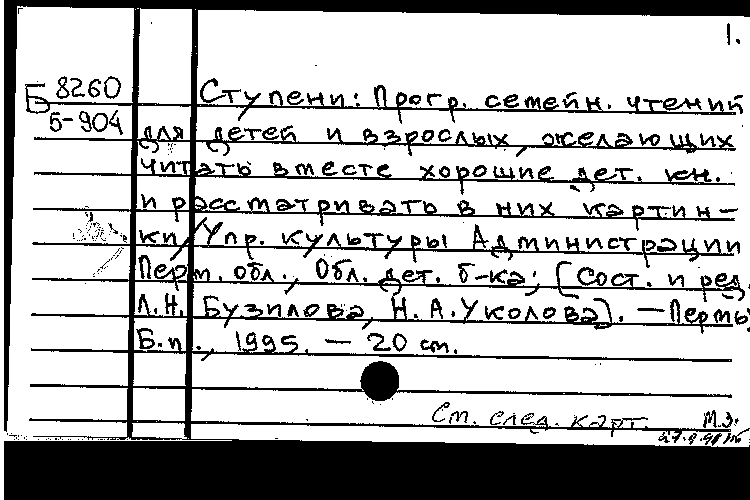 1.
Б 8260
5-904
Ступени: Прогр. семейн. чтений
для детей и взрослых, желающих
читать вместе хорошие дет. кн.
и рассматривать в них картин-
ки/Упр. культуры Администрации
Перм. обл., Обл. дет. б-ка; [Сост. и ред.
Л.Н. Бузилова, Н.А.Уколова]. — Пермь:
Б.и., 1995. — 20 см.
См. след. карт. М.З.